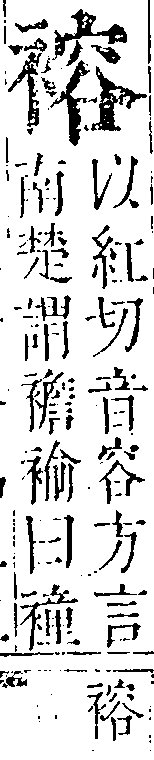 褣
以紅切音容方言
南楚謂襜褕曰𧝎
褣